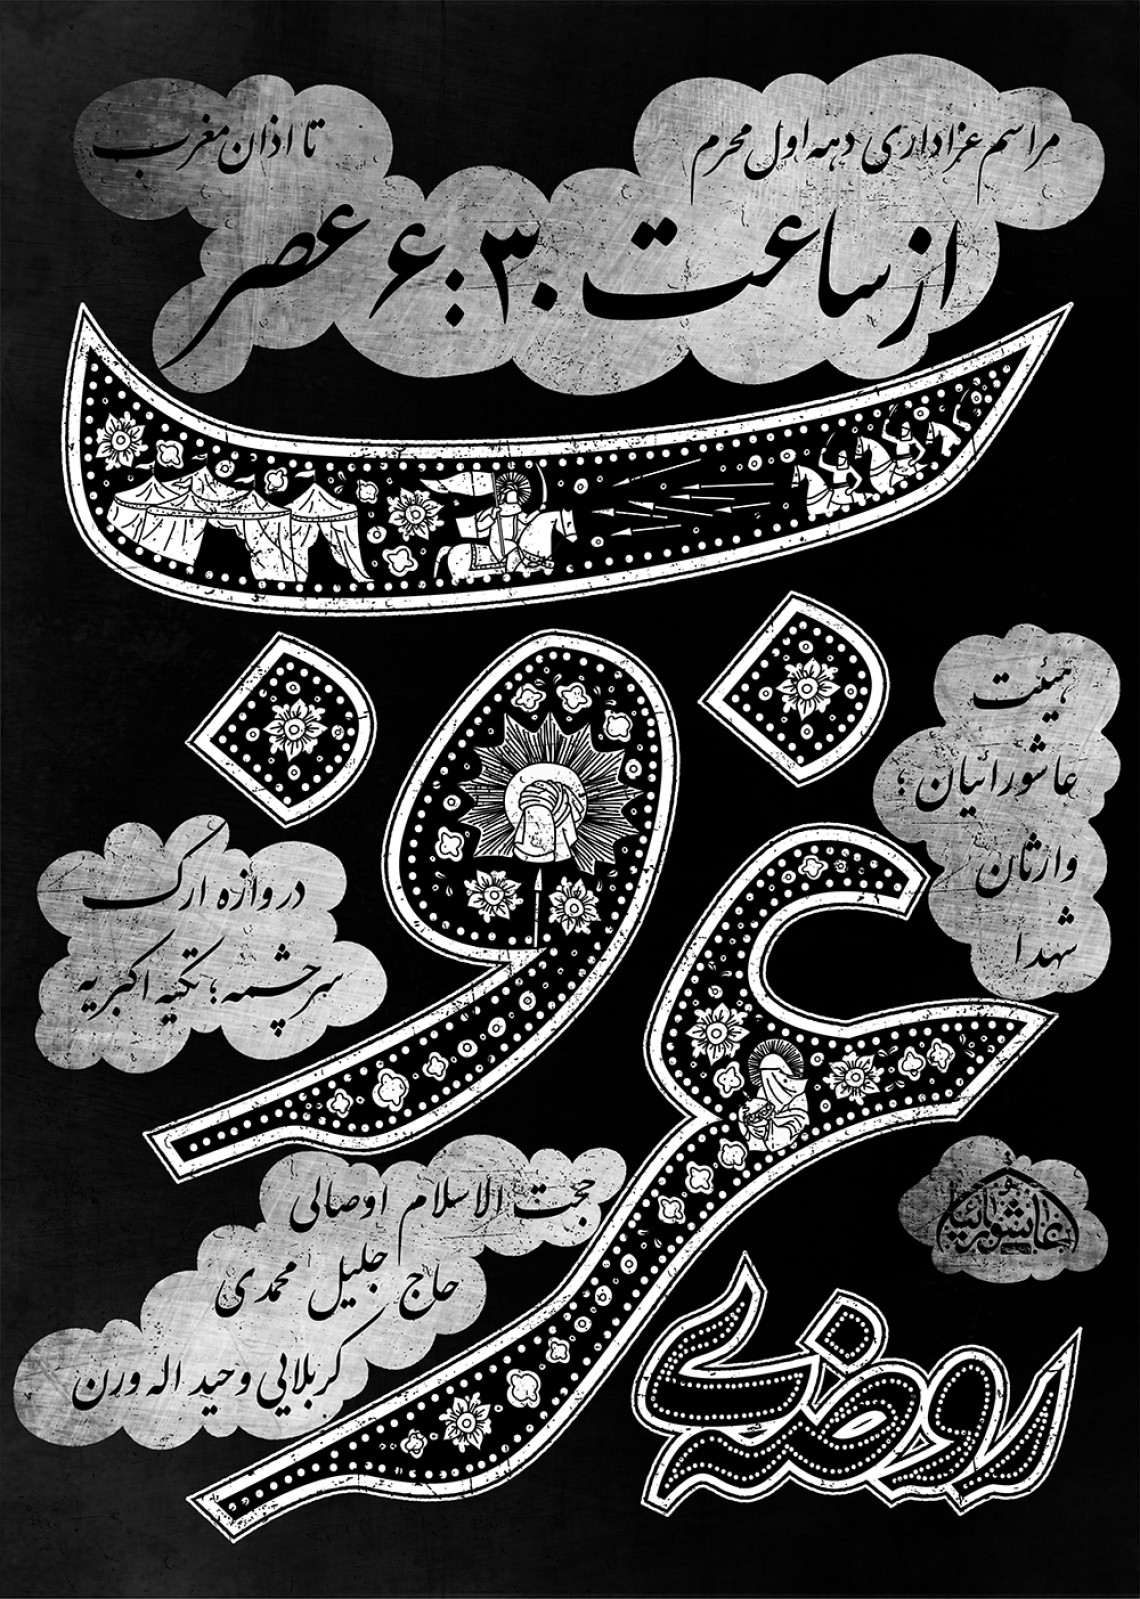 مراسم عزاداری دهه اول محرم
از ساعت ۶:۳۰ عصر
تا اذان مغرب
هیئت
عاشورائیان؛
وارثان
شهدا
روضه ی
غروب
دروازه ارگ
سرچشمه؛ تکیه اکبریه
حجت الاسلام اوصالی
حاج جلیل محمدی
کربلایی وحید اله ورن
عاشورائیان